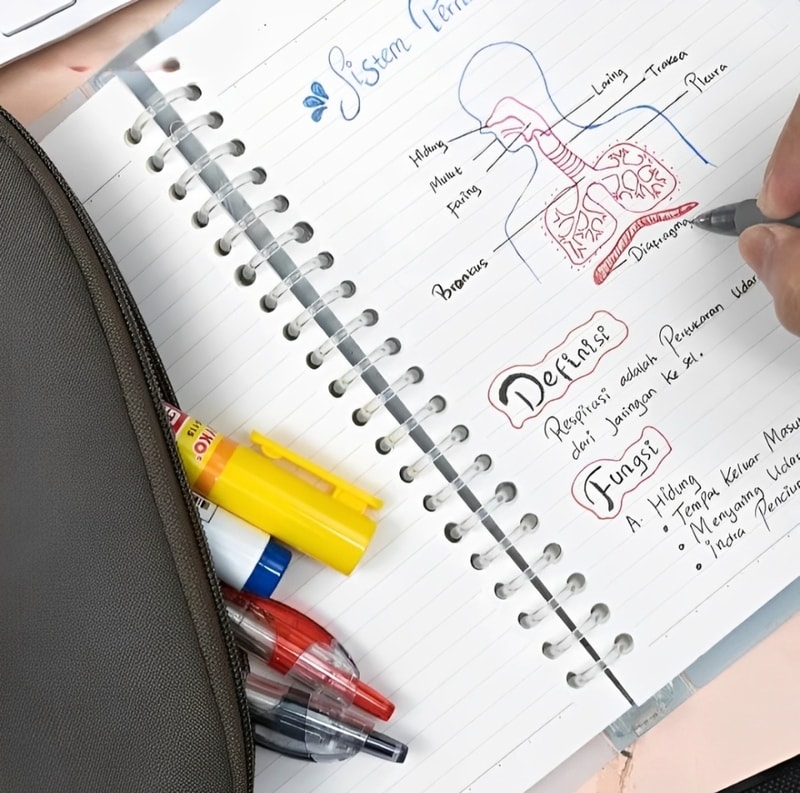 Sistem
Hidung
Mulut
Faring
Bronkus
Laring
Trakea
Pleura
Diafragma
Definisi
Respirasi adalah Pertukaran Udar
dari Jaringan ke sel.
Fungsi
A. Hidung
• Tempat Keluar Masu
• Menyaring Udar
• Indra Penciu